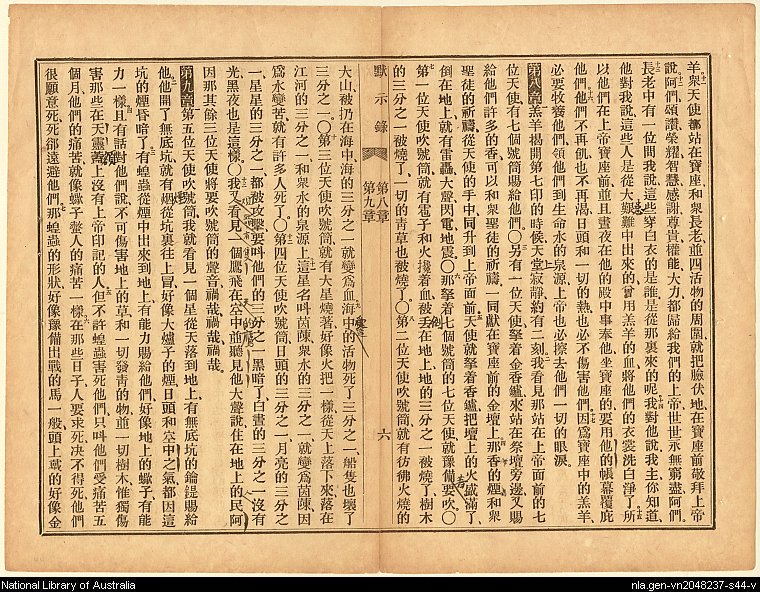 羊衆天使都站在寶座和衆長老並四活物的周圍就把臉伏地在寶座前敬拜上帝
說阿們頌讚榮耀智慧感謝尊貴權能大力都歸給我們的上帝世世永無窮盡阿們
長老中有一位問我說這些穿白衣的是誰是從那裏來的呢我對他說我主你知道
他對我說這些人是從大艱難中出來的曾用羔羊的血將他們的衣裳洗白淨了所
以他們在上帝寶座前並且晝夜在他的殿中事奉他坐寶座的要用他的帳幕覆庇
他們他們不再飢也不再渴日頭和一切的熱也必不傷害他們因爲寶座中的羔羊
必要牧養他們領他們到生命水的泉源上帝也必擦去他們一切的眼淚
第八章羔羊揭開第七印的時候天堂寂靜約有二刻我看見那站在上帝面前的七
位天使有七個號筒賜給他們〇另有一位天使拏着金香爐來站在祭壇旁邊又賜
給他許多的香可以和衆聖徒的祈禱一同獻在寶座前的金壇上那香的煙和衆
聖徒的祈禱從天使的手中同升到上帝面前天使就拏着香爐把壇上的火盛滿了
倒在地上就有雷轟大聲閃電地震〇那拏着七個號筒的七位天使就豫備要吹〇
第一位天使吹號筒就有雹子和火攙着血被丟在地上地的三分之一被燒了樹木
的三分之一被燒了一切的青草也被燒了〇第二位天使吹號筒就有彷彿火燒的
默示錄 第八章 第九章 六
大山被扔在海中海的三分之一就變爲血海中的活物死了三分之一船隻也壞了
三分之一〇第三位天使吹號筒就有大星燒著好像火把一樣從天上落下來落在
江河的三分之一和衆水的泉源上這星名叫茵蔯衆水的三分之一就變爲茵蔯因
爲水變苦就有許多人死了〇第四位天使吹號筒日頭的三分之一月亮的三分之
一星星的三分之一都被攻擊要叫他們的三分之一黑暗了白晝的三分之一沒有
光黑夜也是這樣〇我又看見一個鷹飛在空中並聽見他大聲說住在地上的民阿
因那其餘三位天使將要吹號筒的聲音禍哉禍哉禍哉
第九章第五位天使吹號筒我就看見一個星從天落到地上有無底坑的鑰匙賜給
他他開了無底坑就有煙從坑裏往上冒好像大爐子的煙日頭和空中之氣都因這
坑的煙昏暗了有蝗蟲從煙中出來到地上有能力賜給他們好像地上的蠍子有能
力一樣且有話對他們說不可傷害地上的草和一切發青的物並一切樹木惟獨傷
害那些在天靈蓋上沒有上帝印記的人但不許蝗蟲害死他們只叫他們受痛苦五
個月他們的痛苦就像蠍子螫人的痛苦一樣在那些日子人要求死決不得死他們
很願意死死卻遠避他們那蝗蟲的形狀好像豫備出戰的馬一般頭上戴的好像金
National Library of Australia
nla.gen-vn2048237-s44-v